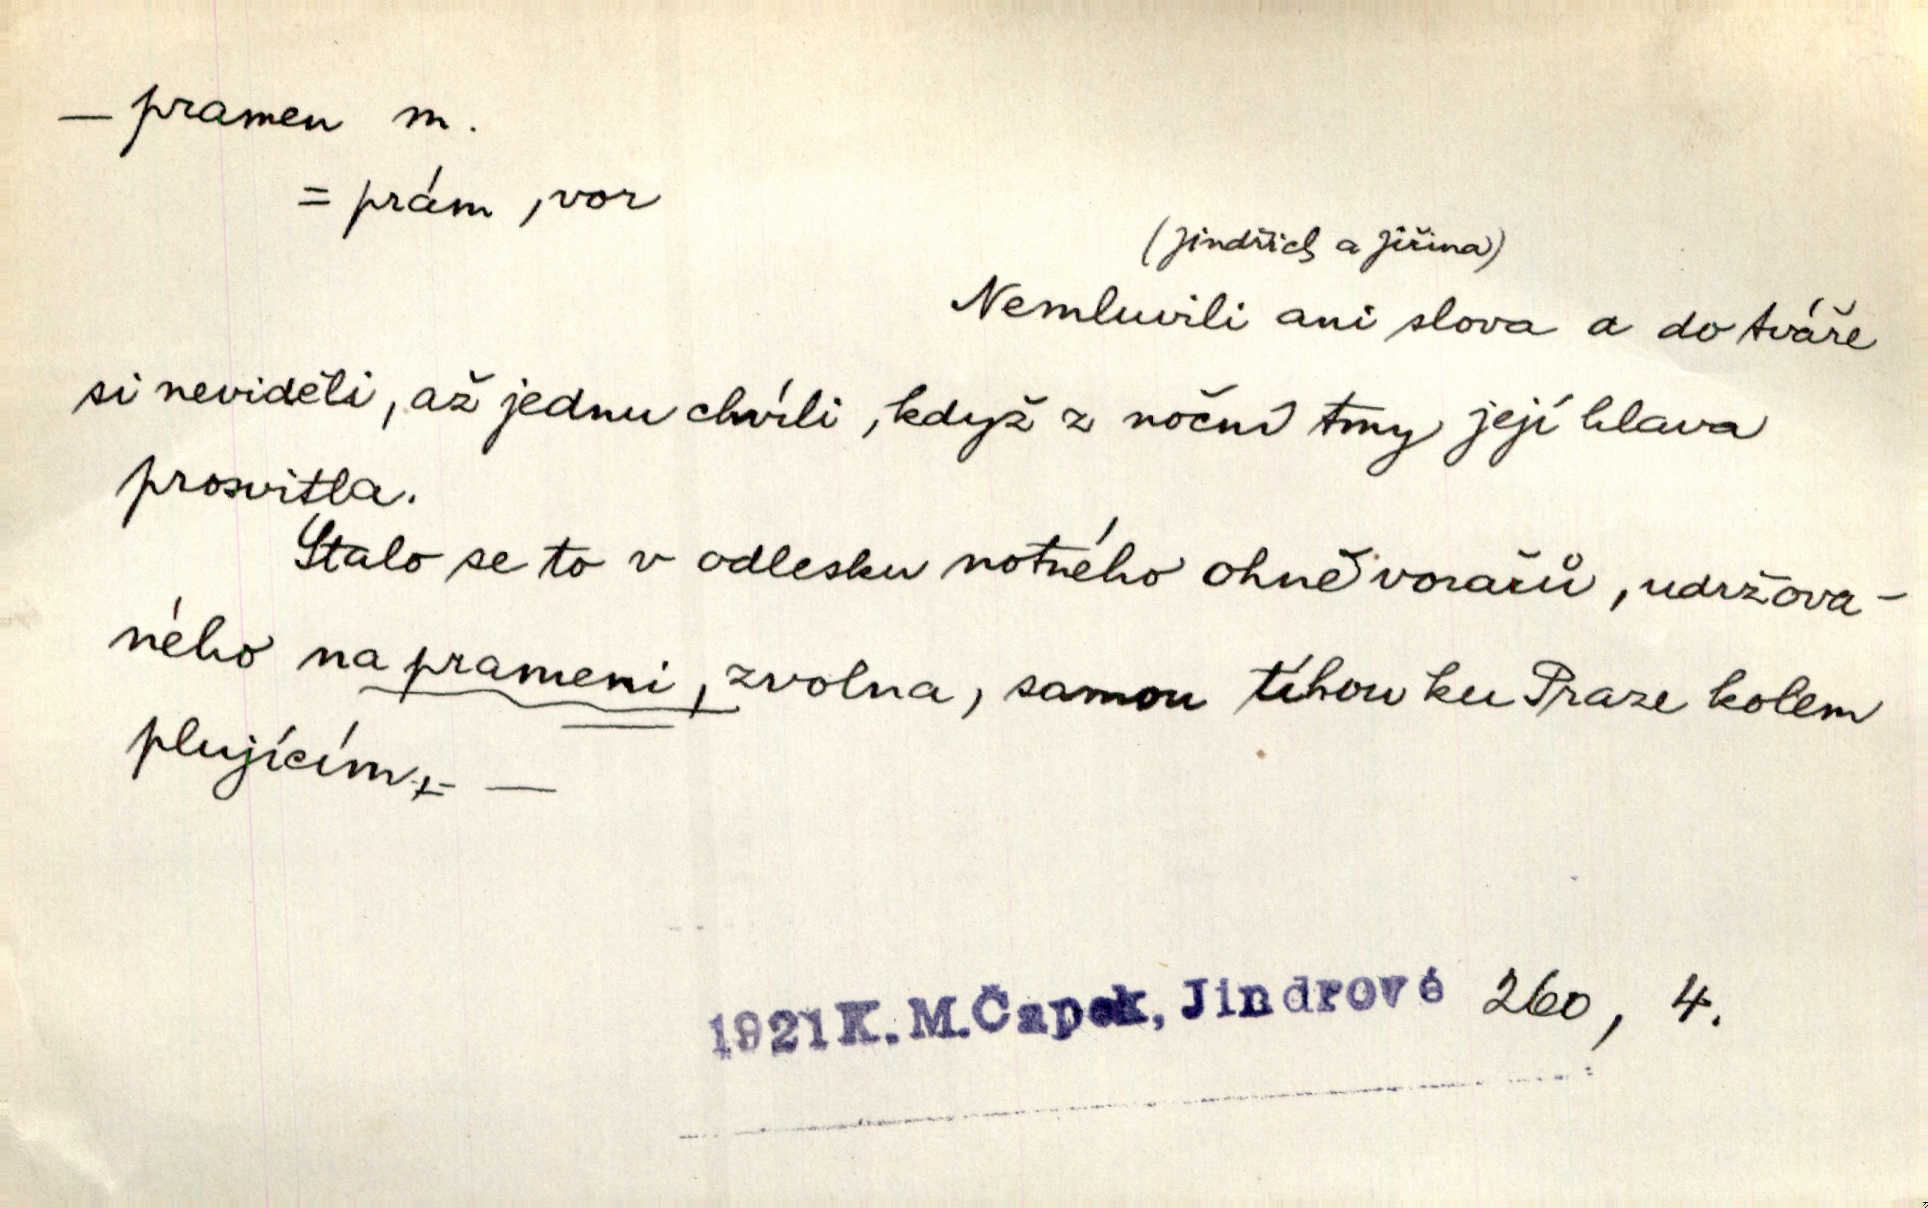 — pramen m.
= prám, vor
(Jindřich a Jiřina)
Nemluvili ani slova a do tváře
si neviděli, až jednu chvíli, když z noční tmy její hlava
prosvitla.
Stalo se to v odlesku notného ohně vorařů, udržova-
ného na prameni, zvolna, samou tíhou ku Praze kolem
plujícím. —
1921 K. M. Čapek, Jindrové 260, 4.